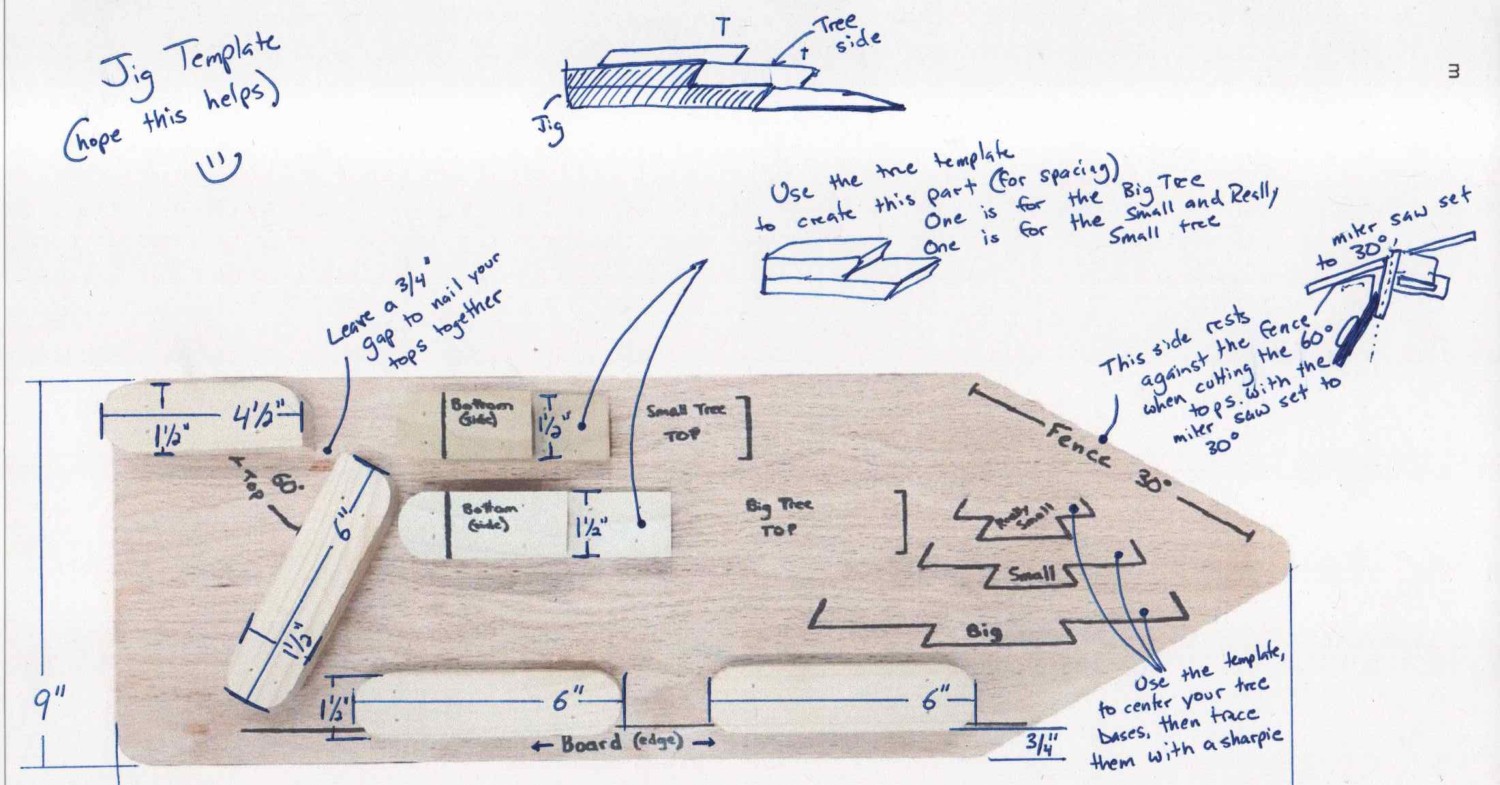 Jig Template
(hope this helps)
T
Tree
side
Jig
3
Use the tree template
to create this part (for spacing)
One is for the Big Tree
One is for the Small and Really
Small tree
miter saw set
to 30°
Leave a 3/4"
gap to nail your
tops together
This side rests
against the fence
when cutting the 60°
tops. with the
miter saw set to
30°
4 1/2"
1 1/2"
Bottom
(side)
1 1/2"
Small Tree
TOP
Fence 30°
Top
6"
1 1/2"
Bottom
(side)
1 1/2"
Big Tree
TOP
Really
Small
Small
Big
9"
1 1/2"
6"
6"
← Board (edge) →
3/4"
Use the template,
to center your tree
bases, then trace
them with a sharpie